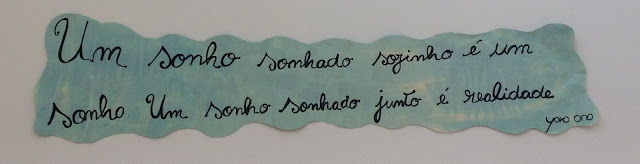 Um sonho sonhado sozinho é um
sonho. Um sonho sonhado junto é realidade
yoko ono